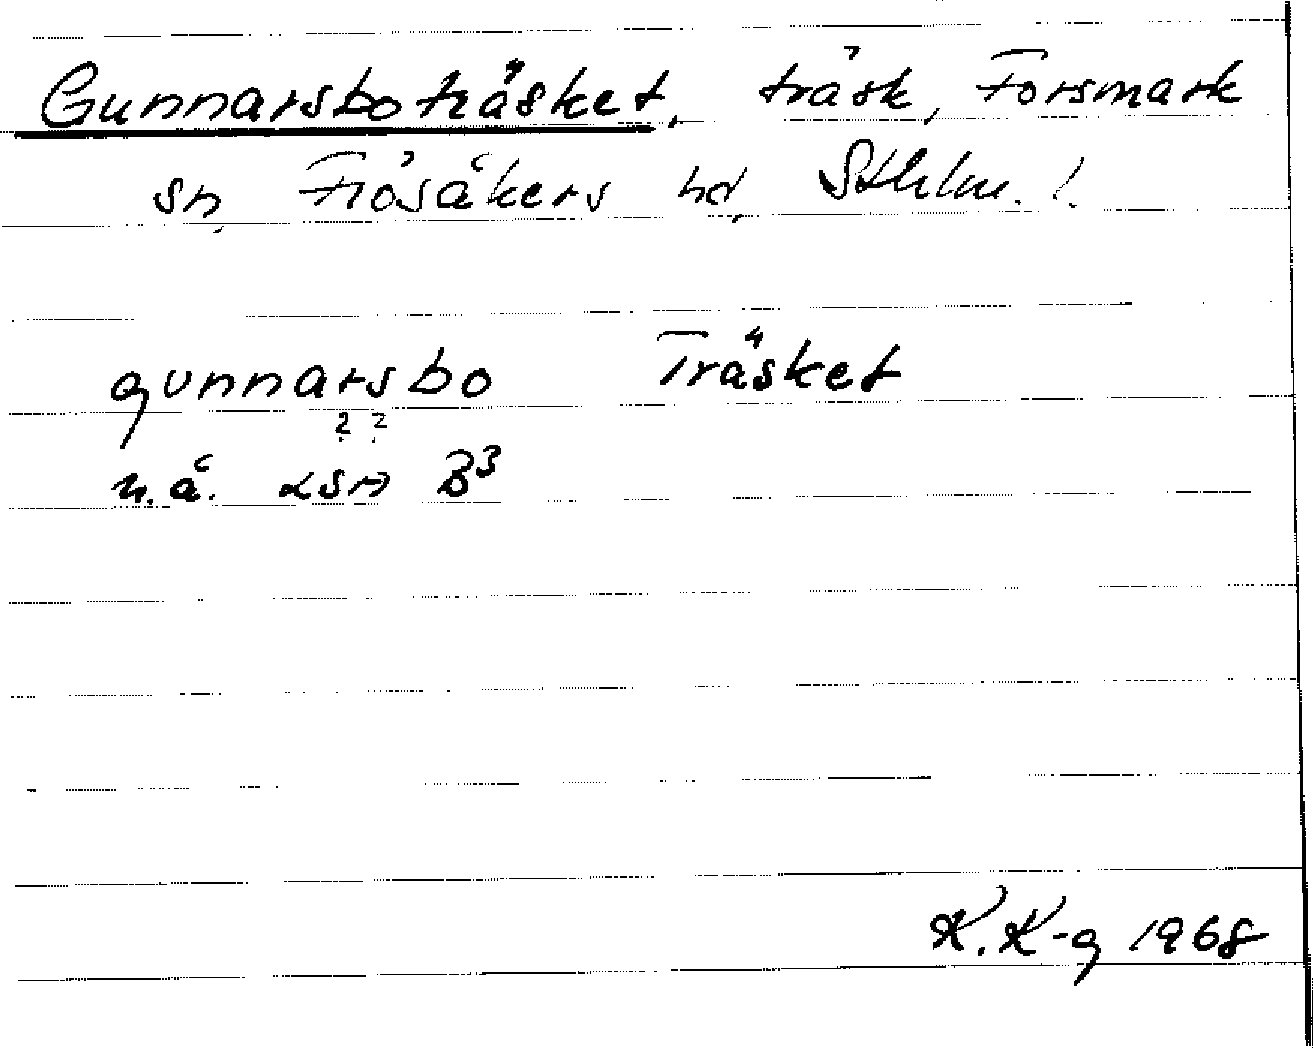 Gunnarsboträsket, träsk, Forsmark
sn, Frösåkers hd, Sthlm. l.
gunnarsbo Träsket
? ?
n.å. LSA B3
K. K-g 1968